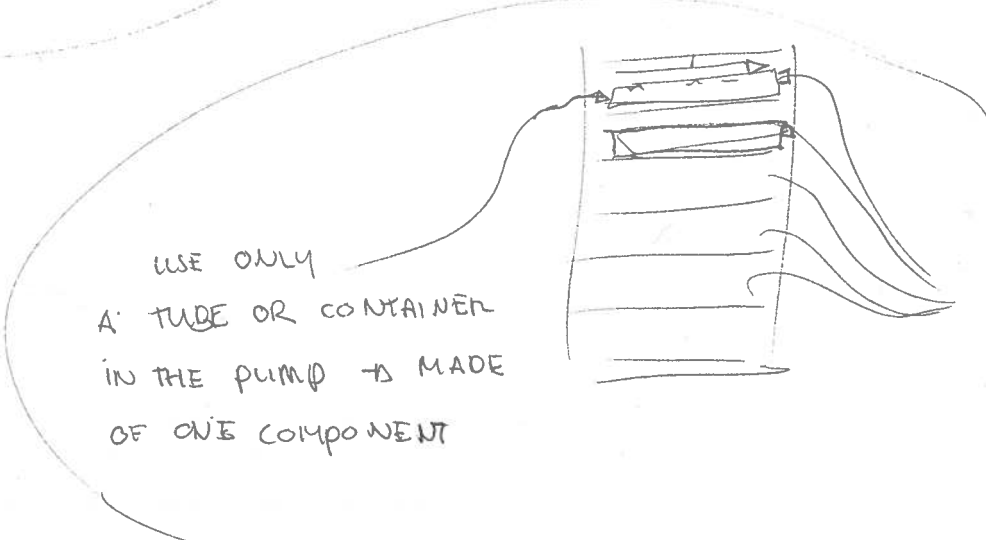 USE ONLY
A TUBE OR CONTAINER
IN THE PUMP → MADE
OF ONE COMPONENT